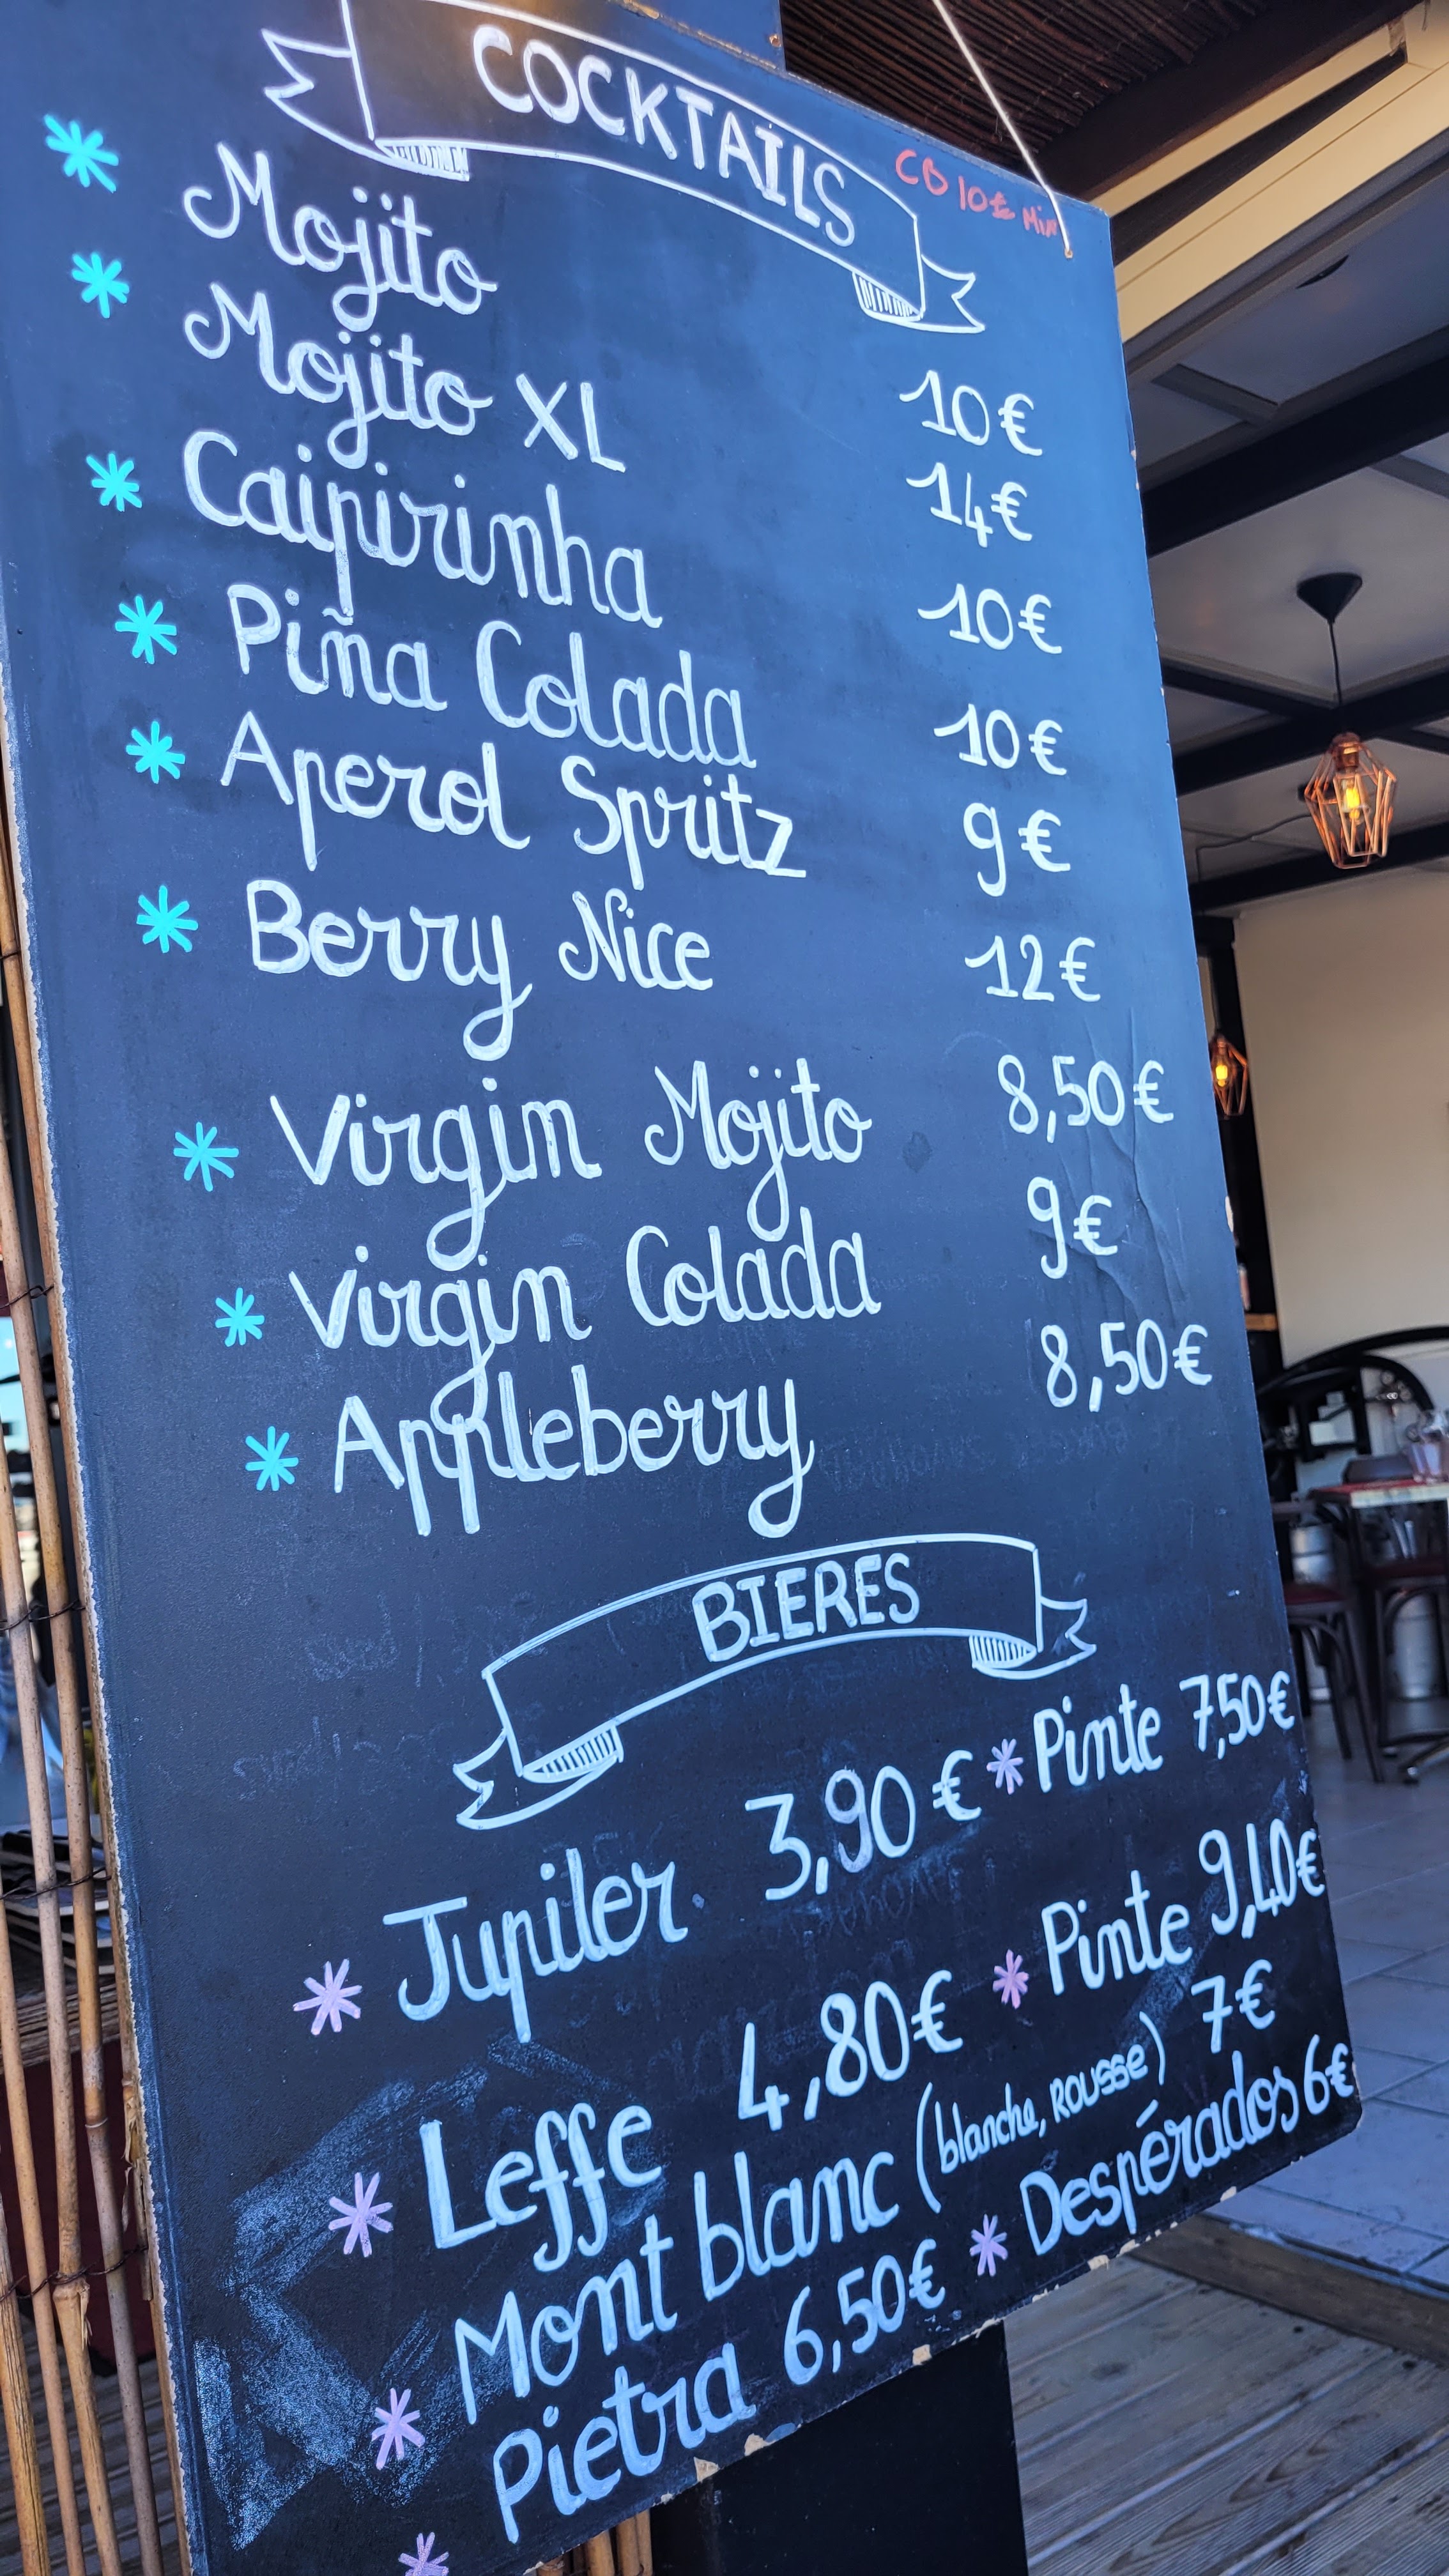 COCKTAILS
CB 10€ Min
* Mojito 10€
* Mojito XL 14€
* Caipirinha 10€
* Piña Colada 10€
* Aperol Spritz 9€
* Berry Nice 12€
* Virgin Mojito 8,50€
* Virgin Colada 9€
* Appleberry 8,50€
BIERES
* Jupiler 3,90€ * Pinte 7,50€
* Leffe 4,80€ * Pinte 9,40€
* Mont blanc (blanche, ROUSSE) 7€
* Pietra 6,50€ * Despérados 6€